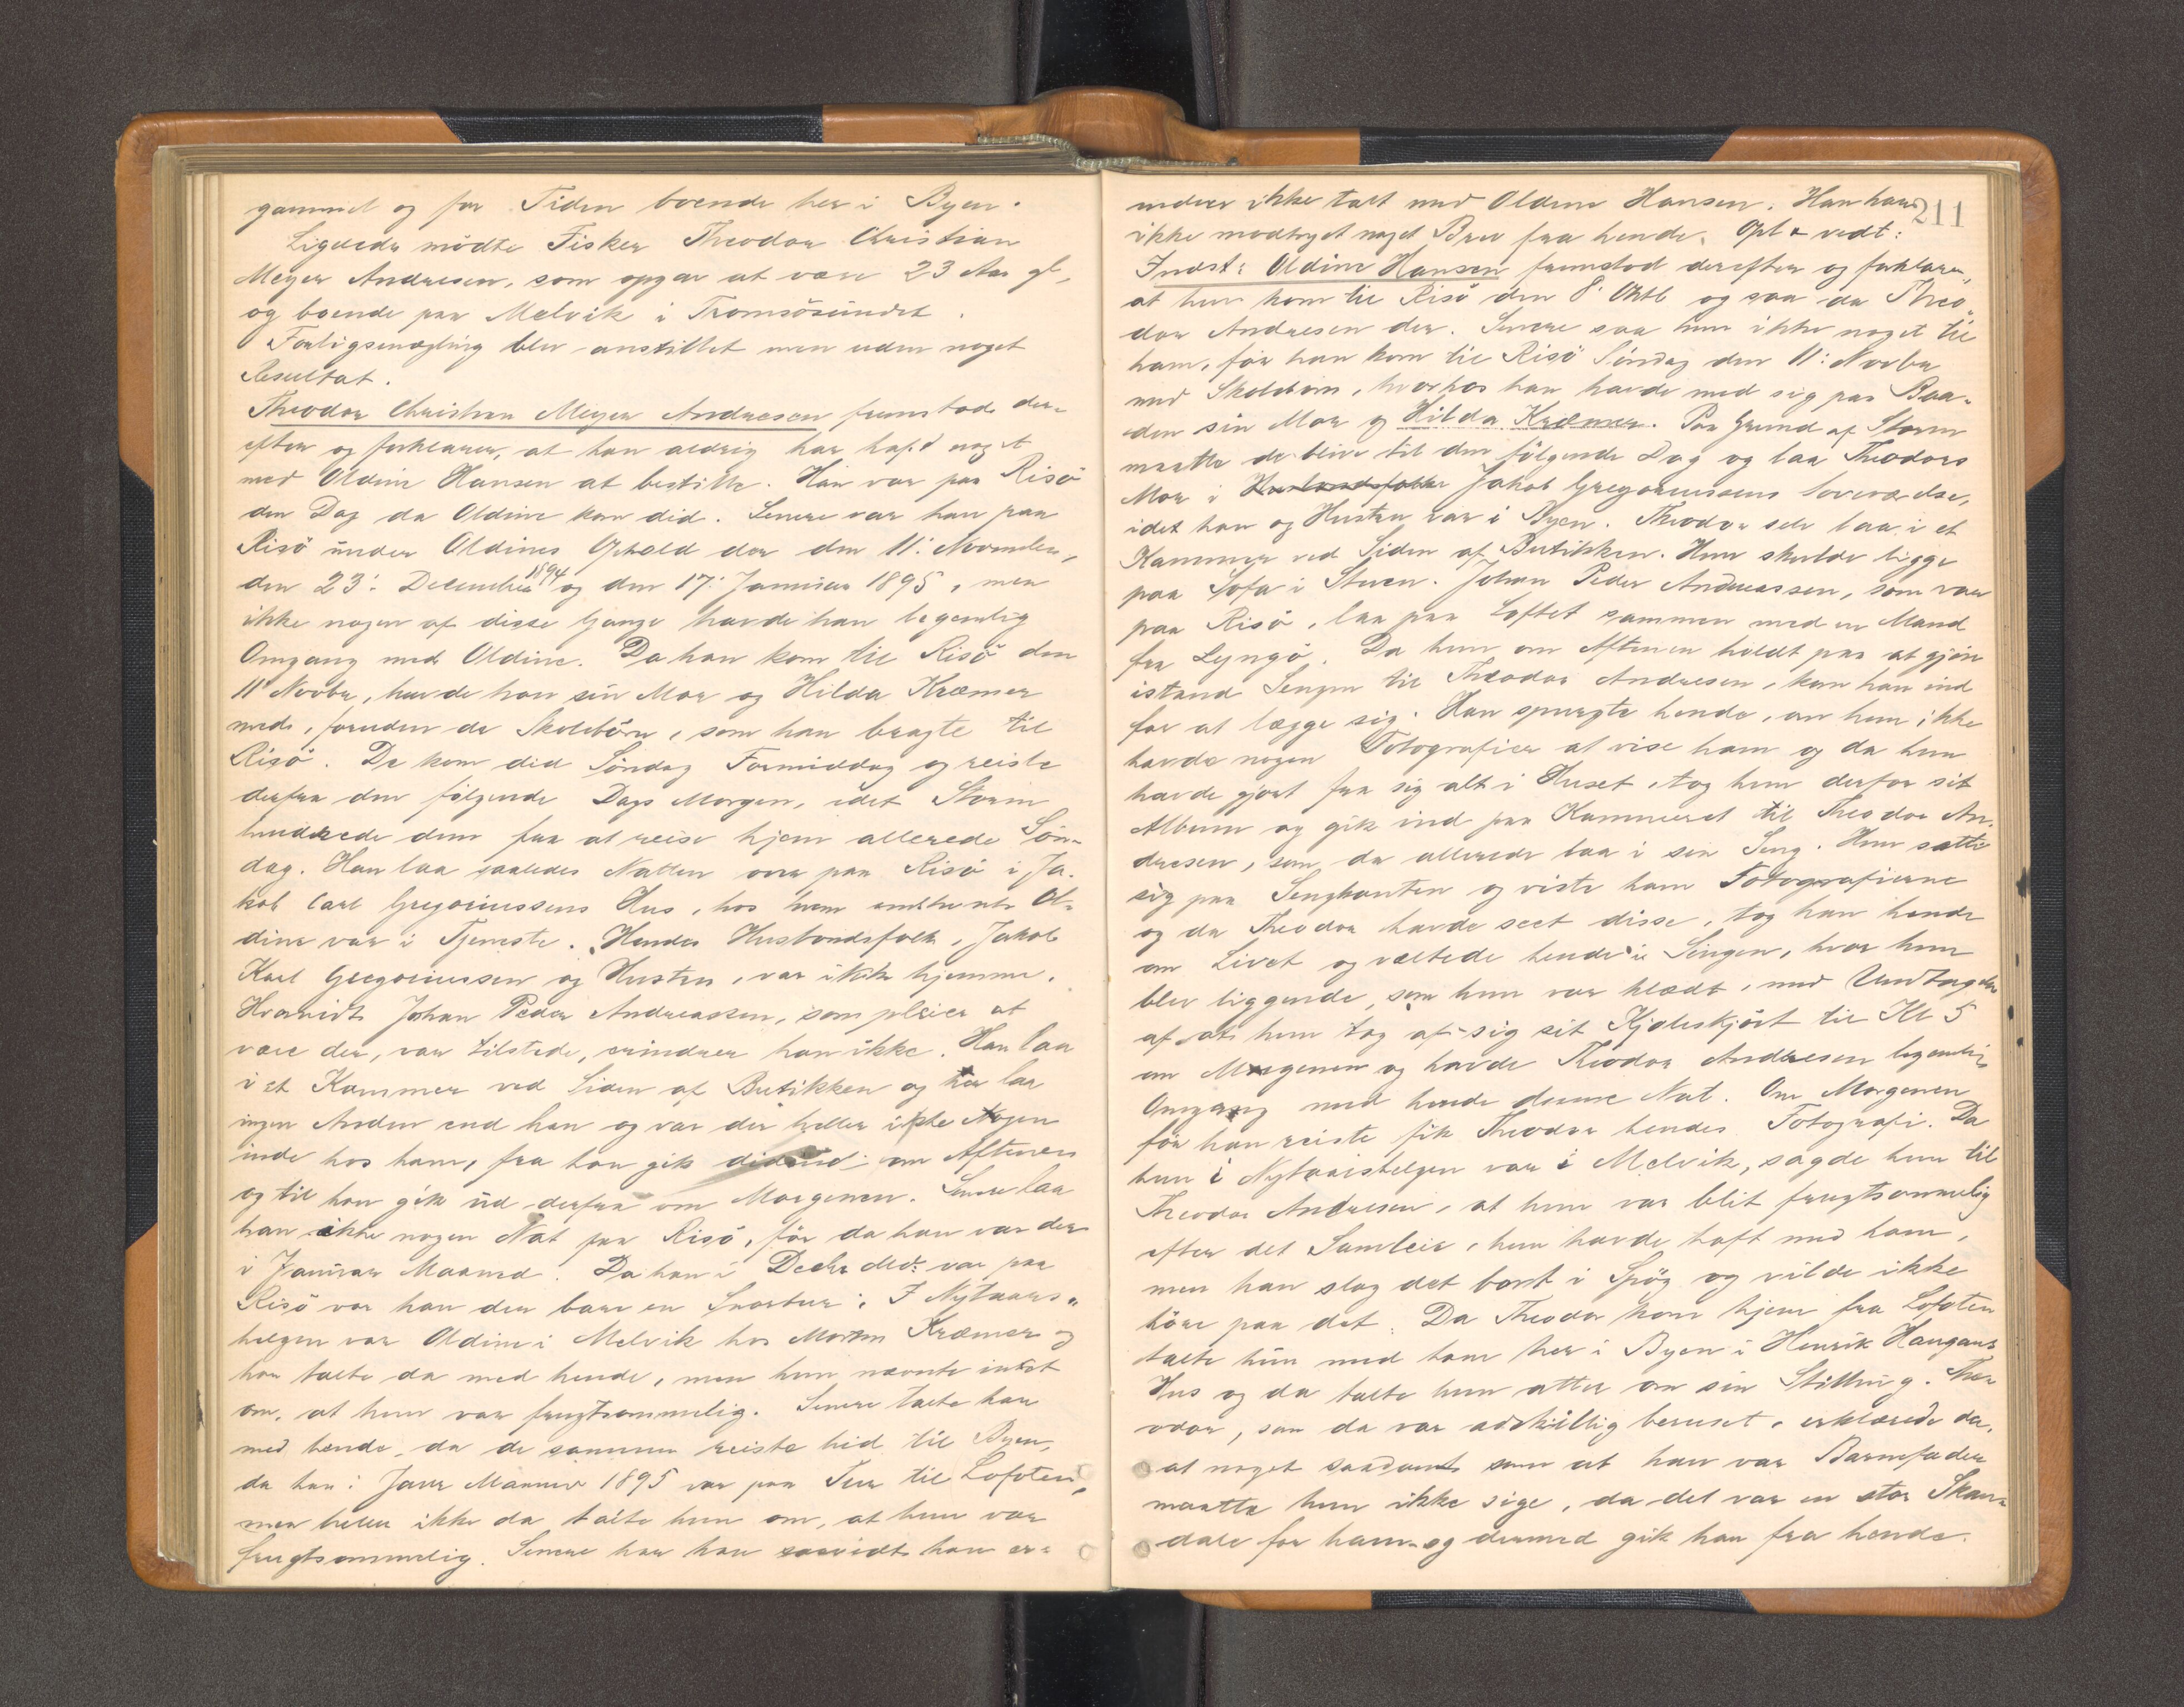 gammel og for Tiden boende her i Byen.
Ligeledes mödte Fisker Theodor Christian
Meyer Andresen, som opgav at være 23 Aar gl,
og boende paa Melvik i Tromsösundet.
Forligsmægling blev anstillet men uden noget
Resultat.
Theodor Christian Meyer Andresen fremstod der-
efter og forklarer, at han aldrig har havt noget
med Oldine Hansen at bestille. Han var paa Risö
den Dag da Oldine kom did. Senere var han paa
Risö under Oldines Ophold der den 11: November,
den 23: December 1894 og den 17: Januar 1895, men
ikke nogen af disse Gange havde han legemlig
Omgang med Oldine. Da han kom til Risö den
11' Novbr, havde han sin Mor og Hilda Kræmer
med, foruden de Skolebörn, som han bragte til
Risö. De kom did Söndag Formiddag og reiste
derfra den fölgende Dags Morgen, idet Storm
hindrede dem fra at reise hjem allerede Sön-
dag. Han laa saaledes Natten over paa Risö i Ja-
kob Carl Gregoriussens Hus, hos hvem Ol-
dine var i Tjeneste. Hendes Husbondsfolk, Jakob
Karl Gregoriussen og Hustru, var ikke hjemme.
Hvorvidt Johan Peder Andreassen, som pleier at
være der, var tilstede, erindrer han ikke. Han laa
i et Kammer ved Siden af Butikken og her laa
ingen Anden end han og var der heller ikke Nogen
inde hos ham, fra han gik didind om Aftenen
og til han gik ud derfra om Morgenen. Senere laa
han ikke nogen Nat paa Risö, för da han var der
i Januar Maaned. Da han i Decbr Md: var paa
Risö var han der bare en Snartur. I Nytaars-
helgen var Oldine i Melvik hos Morten Kræmer og
han talte da med hende, men hun nævnte intet
om, at hun var frugtsommelig. Senere talte han
med hende, da de sammen reiste hid til Byen,
da han i Janr Maaned 1895 var paa Tur til Lofoten,
men heller ikke da talte hun om, at hun var
frugtsommelig. Senere har han saavidt han er-
211
indrer ikke talt med Oldine Hansen. Han har
ikke modtaget noget Brev fra hende. Opl & vedt:
Indst: Oldine Hansen fremstod derefter og forklarer,
at hun kom til Risö den 8' Oktb og saa da Theo-
dor Andresen der. Senere saa hun ikke noget til
ham, för han kom til Risö Söndag den 11: Novbr
med Skolebörn, hvorhos han havde med sig paa Baa-
den sin Mor og Hilda Kræmer. Paa Grund af Storm
maatte de blive til den fölgende Dag og laa Theodors
Mor i Husbondsfolke Jakob Gregoriussens Soveværelse,
idet han og Hustru var i Byen. Theodor selv laa i et
Kammer ved Siden af Butikken. Hun skulde ligge
paa Sofa i Stuen. Johan Peder Andreassen, som var
paa Risö, laa paa Loftet sammen med en Mand
fra Lyngö. Da hun om Aftenen holdt paa at gjöre
istand Sengen til Theodor Andresen, kom han ind
for at lægge sig. Han spurgte hende, om hun ikke
havde nogen Fotografier at vise ham og da hun
havde gjort fra sig alt i Huset, tog hun derfor sit
Album og gik ind paa Kammeret til Theodor An-
dresen, som da allerede laa i sin Seng. Hun satte
sig paa Sengkanten og viste ham Fotografierne
og da Theodor havde seet disse, tog han hende
om Livet og væltede hende i Sengen, hvor hun
blev liggende, som hun var klædt, med Undtagelse
af at hun tog af sig sit Kjoleskjört til Kl 5
om Morgenen og havde Theodor Andresen legemlig
Omgang med hende denne Nat. Om Morgenen
för han reiste fik Theodor hendes Fotografi. Da
hun i Nytaarshelgen var i Melvik, sagde hun til
Theodor Andresen, at hun var blit frugtsommelig
efter det Samleie, hun havde haft med ham,
men han slog det bort i Spög og vilde ikke
höre paa det. Da Theodor kom hjem fra Lofoten
talte hun med ham her i Byen i Henrik Haugans
Hus og da talte hun atter om sin Stilling. Theo-
odor, som da var adskillig beruset, erklærede da,
at noget saadant som at han var Barnefader
maatte hun ikke sige, da det var en stor Skan-
dale for ham og dermed gik han fra hende.